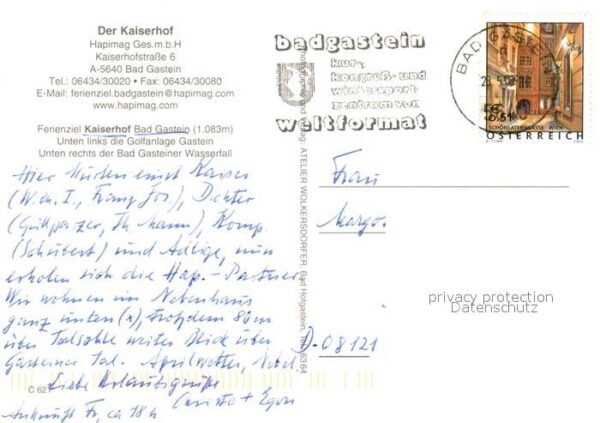 Der Kaiserhof
Hapimag Ges.m.b.H
Kaiserhofstraße 6
A-5640 Bad Gastein
Tel.: 06434/30020 • Fax: 06434/30080
E-Mail: ferienziel.badgastein@hapimag.com
www.hapimag.com
Ferienziel Kaiserhof Bad Gastein (1.083m)
Unten links die Golfanlage Gastein
Unten rechts der Bad Gasteiner Wasserfall
Hier kurten einst Kaiser
(W.ch.I., Franz Jos.), Dichter
(Grillparzer, Th. Mann), Komp.
(Schubert) und Adlige, nun
erholen sich die Hap.-Partner.
Wir wohnen im Nebenhaus
ganz unten (x), trotzdem 80m
über Talsohle weiter Blick über
Gasteiner Tal. Aprilwetter, Nebel.
Liebe Urlaubsgrüße
Christa + Egon
Ankunft Fr, ca 18h
C 627
badgastein
kur-,
kongreß- und
wintersport
zentrum von
weltformat
Verlag: ATELIER WOLKERSDORFER, Bad Hofgastein, Tel. 6364
BAD GASTEIN
€ 0,51
SCHÖNLATERNGASSE, WIEN
ÖSTERREICH
Frau
Margo.
D-08121
privacy protection
Datenschutz